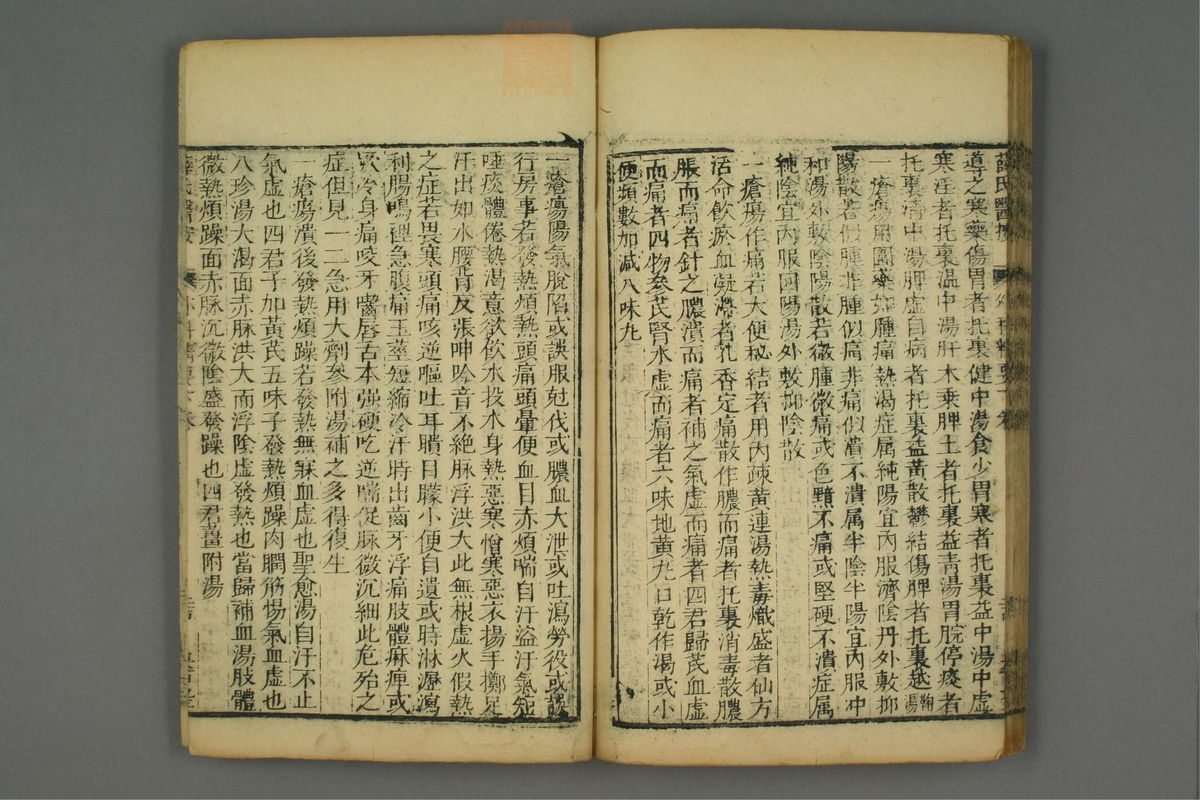 導之寒藥傷胃者托裏健中湯食少胃寒者托裏益中湯中虛
寒淫者托裏溫中湯肝木乘脾土者托裏益青湯胃脘停痰者
托裏清中湯脾虛自病者托裏益黃散鬱結傷脾者托裏越鞠湯
一瘡瘍用圍藥如腫痛熱渴症属純陽宜內服濟陰丹外敷抑
陽散若似腫非腫似痛非痛似潰不潰属半陰半陽宜內服冲
和湯外敷陰陽散若微腫微痛或色黯不痛或堅硬不潰症属
純陰宜內服回陽湯外敷抑陰散
一瘡瘍作痛若大便秘結者用內疎黃連湯熱毒熾盛者仙方
活命飲瘀血凝滯者乳香定痛散作膿而痛者托裏消毒散膿
脹而痛者針之膿潰而痛者補之氣虛而痛者四君歸芪血虛
而痛者四物參芪腎水虛而痛者六味地黃丸口乾作渴或小
便頻數加減八味丸
一瘡瘍陽氣脫陷或誤服尅伐或膿血大泄或吐瀉勞役或誤
行房事若發熱煩熱頭痛頭暈便血目赤煩喘自汗盜汗氣短
唾痰體倦熱渴意欲飲水投水身熱惡寒憎寒惡衣揚手擲足
汗出如水腰背反張呻吟音不絕脉浮洪大此無根虛火假熱
之症若畏寒頭痛咳逆嘔吐耳聵目朦小便自遺或時淋瀝瀉
利腸鳴裡急腹痛玉莖短縮冷汗時出齒牙浮痛肢體麻痺或
厥冷身痛咬牙嚙唇舌本强硬吃逆喘促脉微沉細此危殆之
症但見一二急用大劑參附湯補之多得復生
一瘡瘍潰後發熱煩躁若發熱無寐血虛也聖愈湯自汗不止
氣虛也四君子加黃芪五味子發熱煩躁肉瞤筋惕氣血虛也
八珍湯大渴面赤脉洪大而浮陰虛發熱也當歸補血湯肢體
微熱煩躁面赤脉沉微陰盛發躁也四君薑附湯